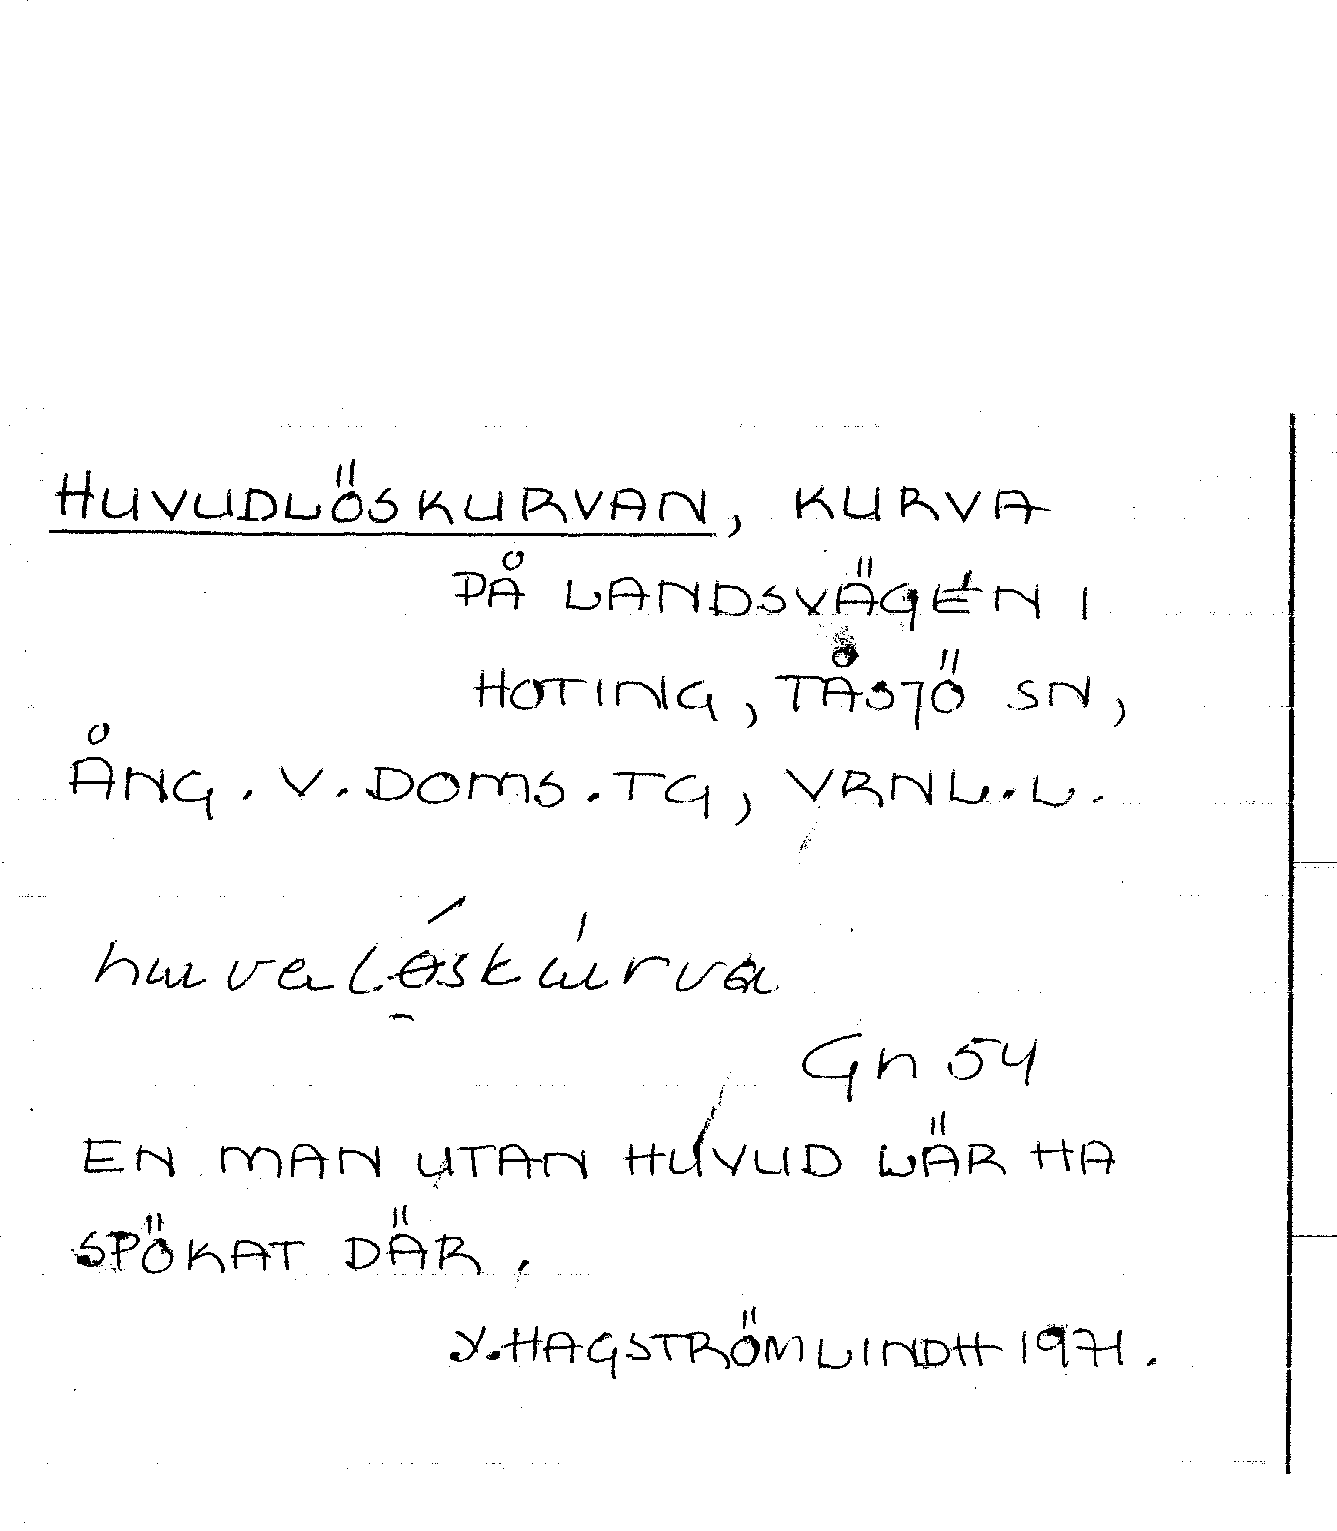 HUVUDLÖSKURVAN, KURVA
PÅ LANDSVÄGEN I
HOTING, TÅSJÖ SN,
ÅNG. V. DOMS. TG, VRNL. L.
huvalöskúrva
Gn 54
EN MAN UTAN HUVUD LÄR HA
SPÖKAT DÄR.
Y. HAGSTRÖMLINDH 1971.